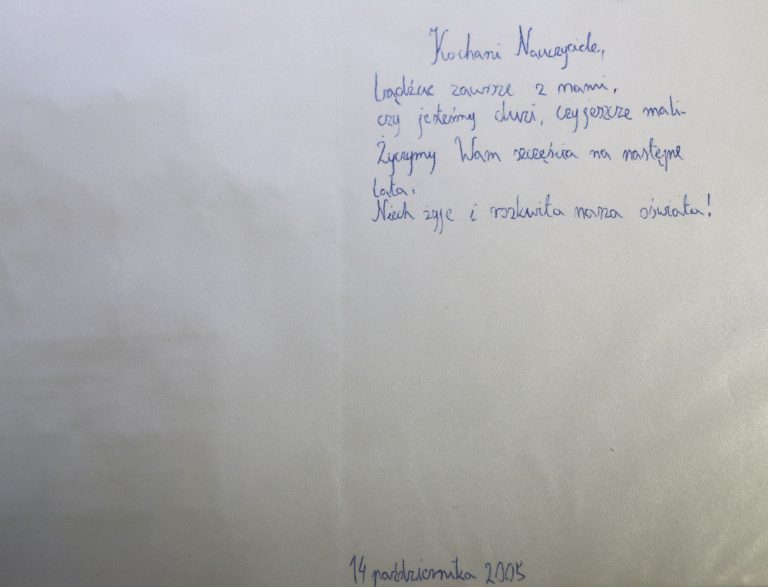 Kochani Nauczyciele,
bądźcie zawsze z nami,
czy jesteśmy duzi, czy jeszcze mali.
Życzymy Wam szczęścia na następne
lata.
Niech żyje i rozkwita nasza oświata!
14 października 2005